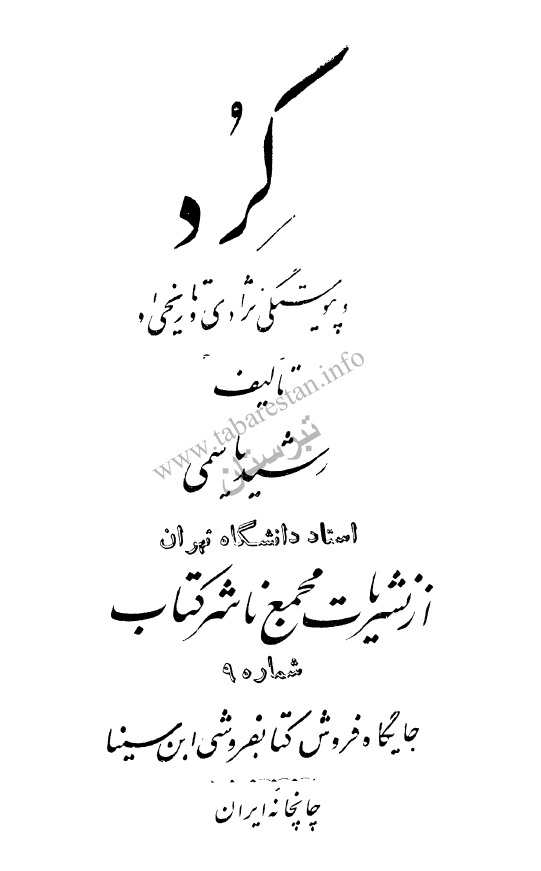 کُرد
و پیوستگی نژادی و تاریخی او
تألیف
رشید یاسمی
استاد دانشگاه تهران
از نشریات مجمع ناشر کتاب
شماره ۹
جایگاه فروش کتابفروشی ابن سینا
چاپخانه ایران
www.tabarestan.info
تبرستان